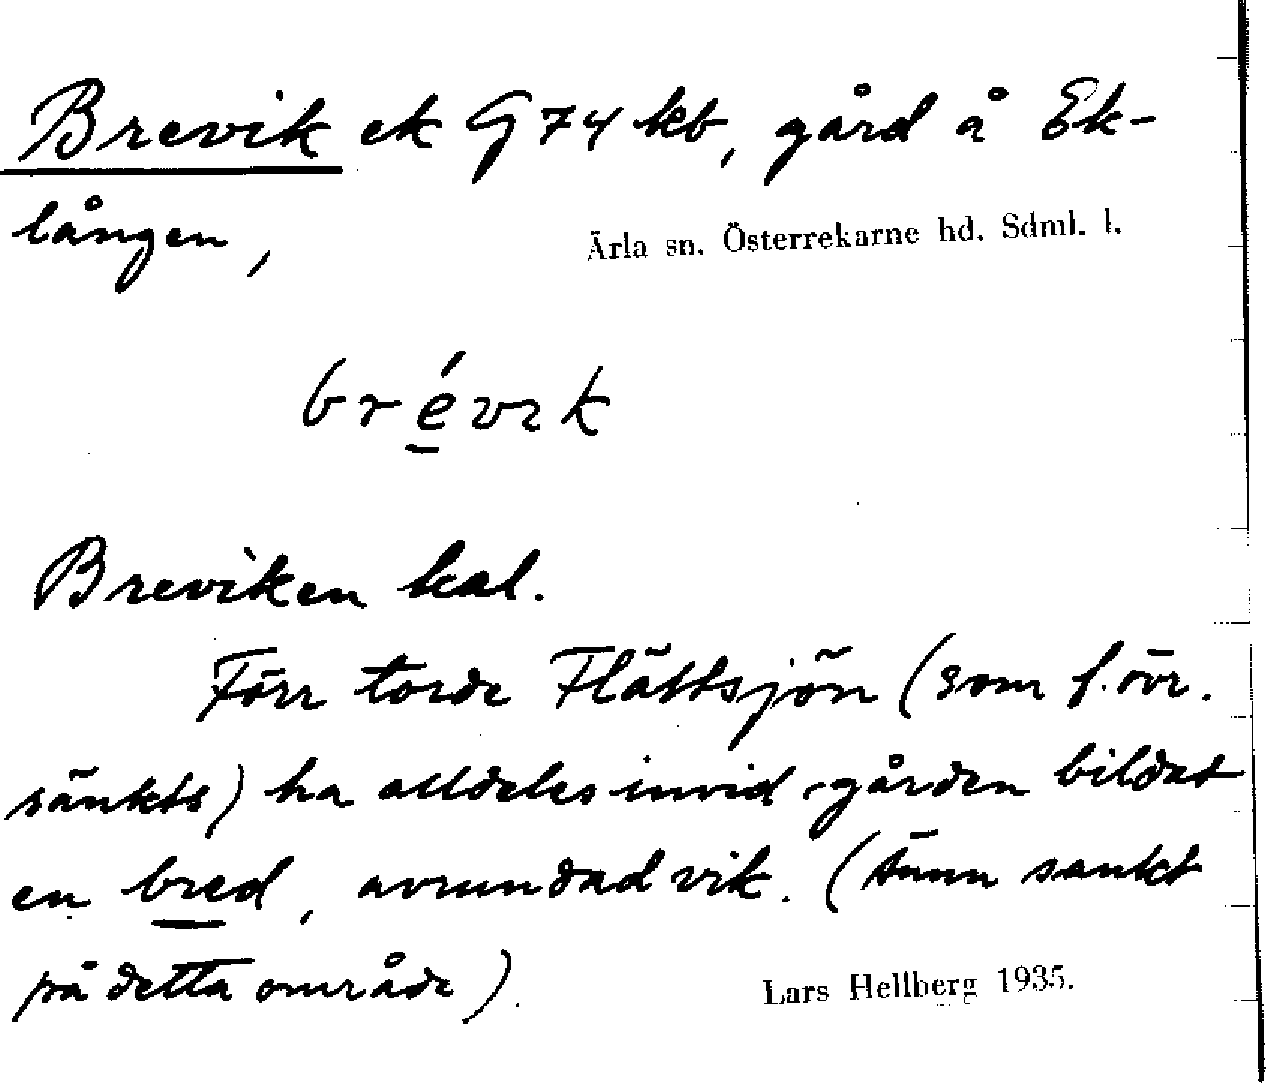 Brevik ek G 74 kb, gård å Ek-
lången,
Ärla sn. Österrekarne hd. Sdml. l.
brévɪk
Breviken kal.
Förr torde Flättsjön (som f. övr.
sänkts) ha alldeles invid gården bildat
en bred, avrundad vik. (Ännu sankt
på detta område).
Lars Hellberg 1935.